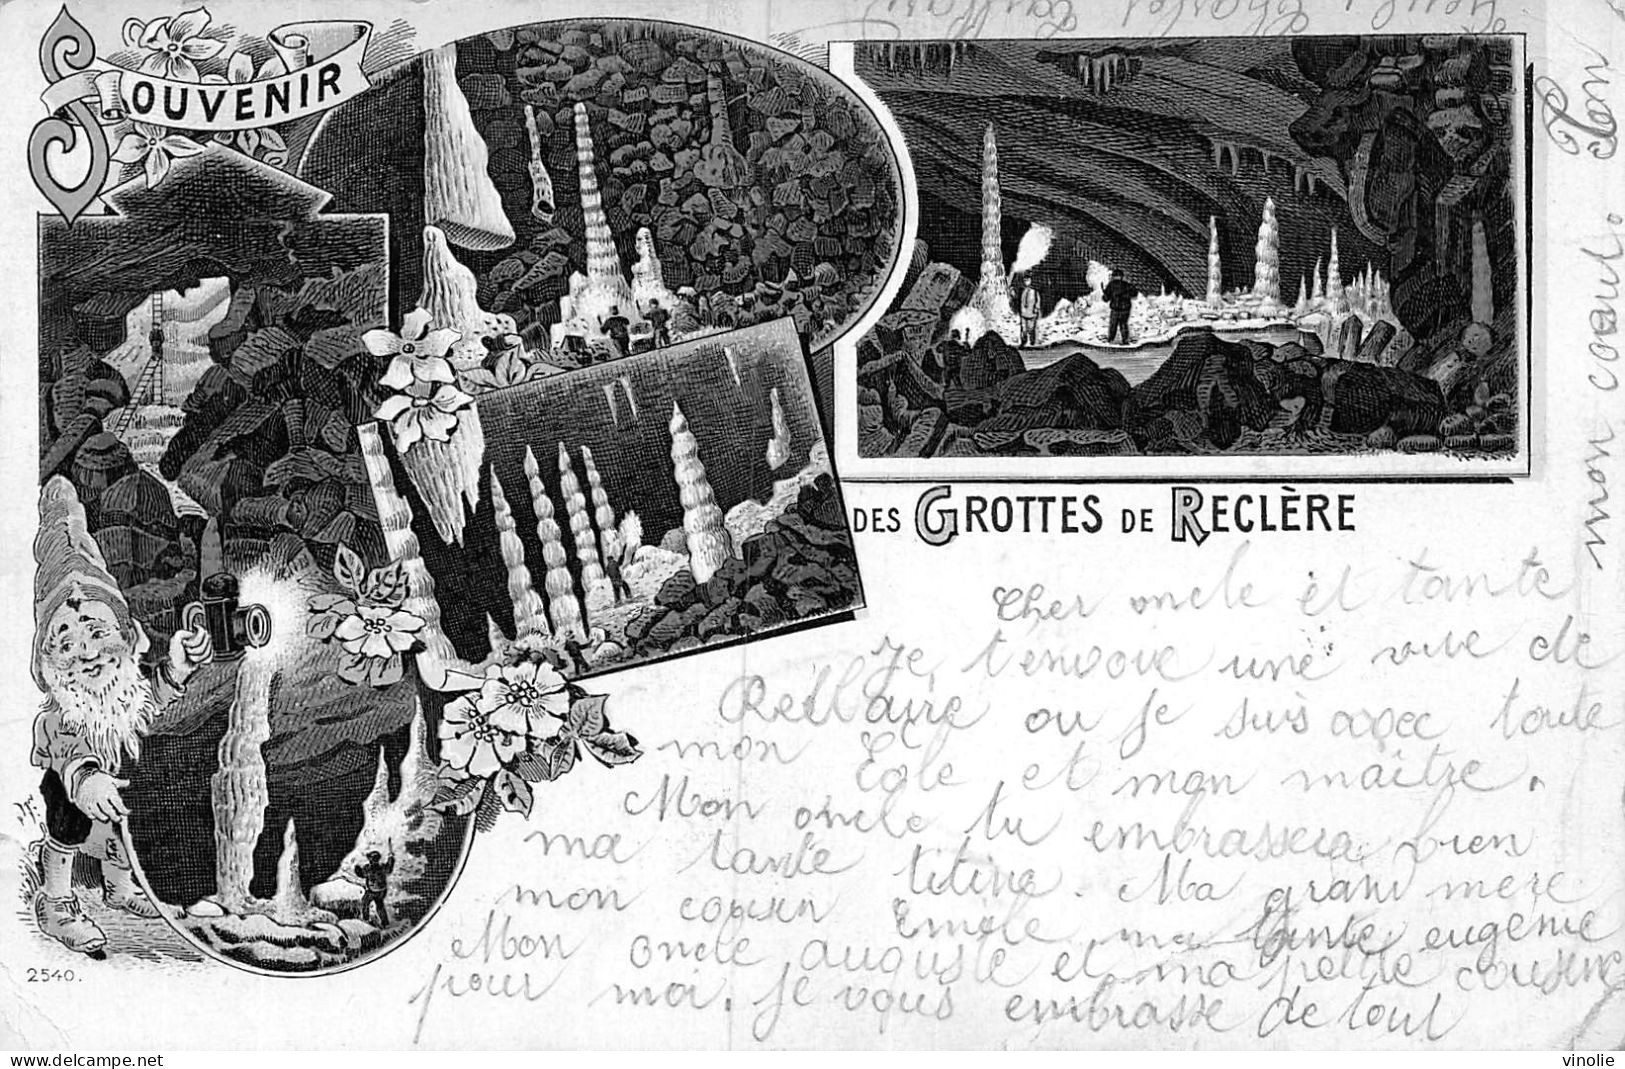 SOUVENIR
DES GROTTES DE RECLÈRE
Cher oncle et tante
Je t'envoie une vue de
Recllaire ou je suis avec toute
mon Ecole et mon maître.
Mon oncle tu embrassera bien
ma tante titine. Ma grand mere
mon cousin Emile ma tante eugenie
Mon oncle auguste et ma petite cousine
pour moi. Je vous embrasse de tout
mon cœur.
Léon
2540.
vinolie